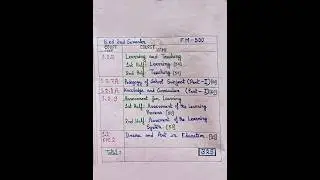 B.ed 2nd Semester F.M-500
COURSE COURSE
Learning and Teaching
1st Half: Learning (50)
2nd Half: Teaching (50)
Pedagogy of School Subject (Part-I)
Knowledge and Curriculum (Part-I)
Assessment for Learning
1st Half: Assessment of the Learning
Process (50)
2nd Half: Assessment of the Learning
System (50)
EPC 2 Drama and Art in Education
Total: